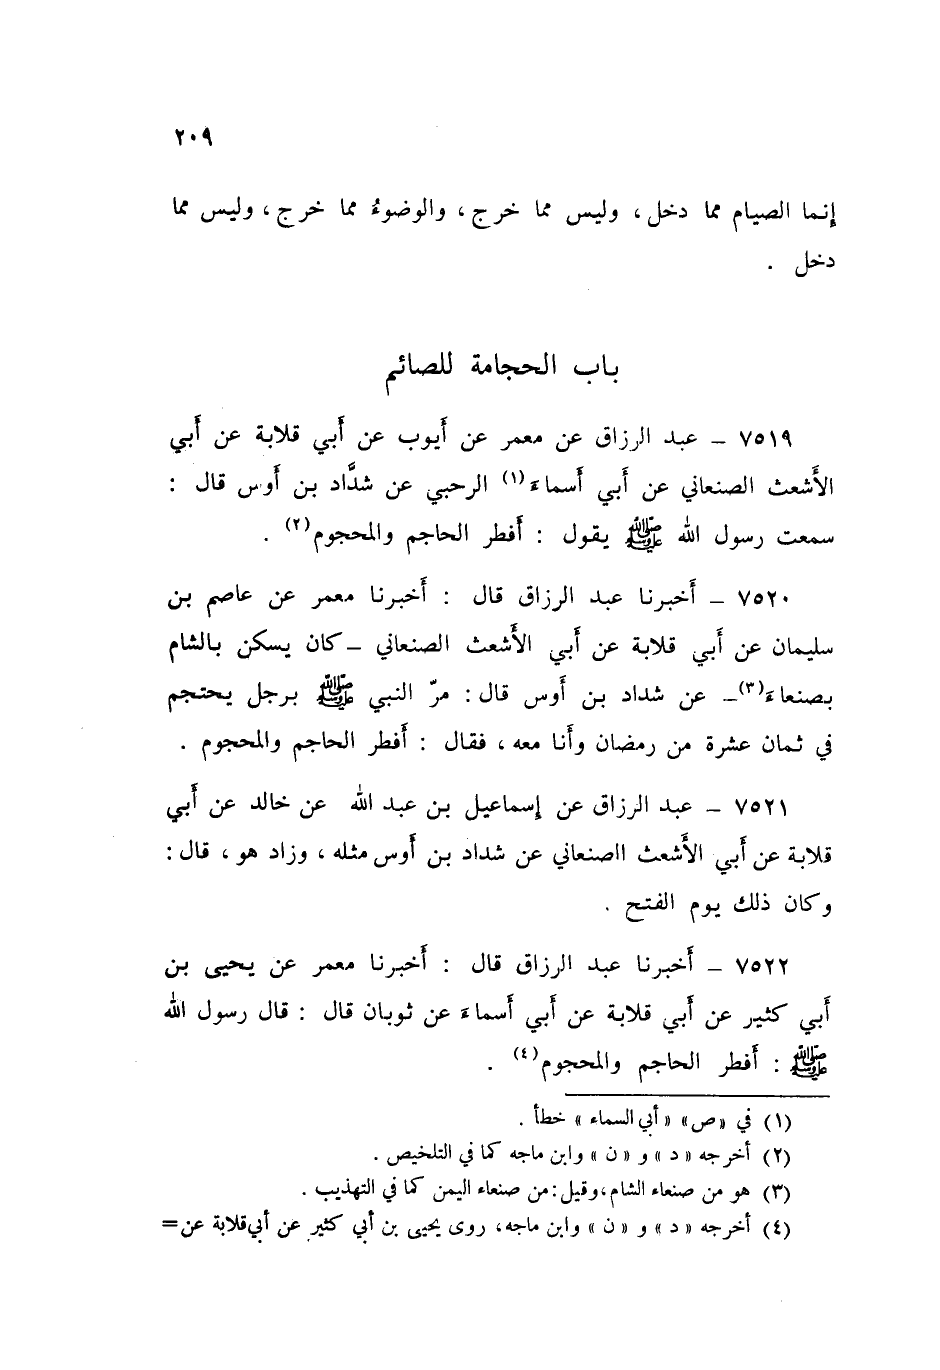 ٢٠٩
إنما الصيام مما دخل، وليس مما خرج، والوضوءُ مما خرج، وليس مما
دخل .
باب الحجامة للصائم
٧٥١٩ – عبد الرزاق عن معمر عن أَيوب عن أَبي قلابة عن أَبي
الأَشعث الصنعاني عن أَبي أَسماءَ(١) الرحبي عن شدَّاد بن أَوس قال :
سمعت رسول الله ﷺ يقول : أَفطر الحاجم والمحجوم(٢) .
٧٥٢٠ – أَخبرنا عبد الرزاق قال : أَخبرنا معمر عن عاصم بن
سليمان عن أَبي قلابة عن أَبي الأَشعث الصنعاني – كان يسكن بالشام
بصنعاءَ(٣)– عن شداد بن أَوس قال: مرّ النبي ﷺ برجل يحتجم
في ثمان عشرة من رمضان وأَنا معه ، فقال : أَفطر الحاجم والمحجوم .
٧٥٢١ – عبد الرزاق عن إِسماعيل بن عبد الله عن خالد عن أَبي
قلابة عن أَبي الأَشعث االصنعاني عن شداد بن أَوس مثله ، وزاد هو ، قال :
وكان ذلك يوم الفتح .
٧٥٢٢ – أَخبرنا عبد الرزاق قال : أَخبرنا معمر عن يحيى بن
أَبي كثير عن أَبي قلابة عن أَبي أَسماءَ عن ثوبان قال : قال رسول الله
ﷺ : أَفطر الحاجم والمحجوم(٤) .
(١) في «ص» «أبي السماء» خطأ .
(٢) أخرجه «د» و «ن» وابن ماجه كما في التلخيص .
(٣) هو من صنعاء الشام،وقيل:من صنعاء اليمن كما في التهذيب .
(٤) أخرجه «د» و «ن» وابن ماجه، روى يحيى بن أبي كثير عن أبي قلابة عن=